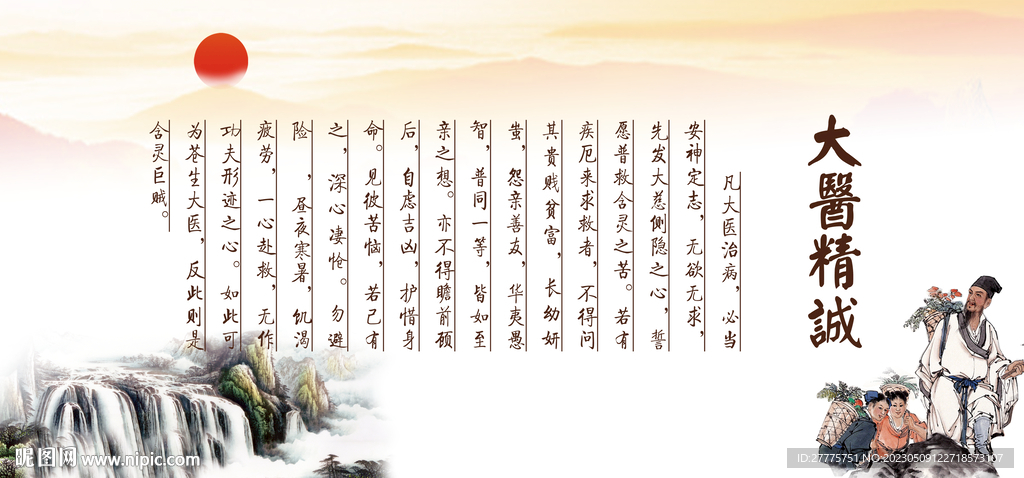 大醫精誠
凡大医治病，必当
安神定志，无欲无求，
先发大慈恻隐之心，誓
愿普救含灵之苦。若有
疾厄来求救者，不得问
其贵贱贫富，长幼妍
蚩，怨亲善友，华夷愚
智，普同一等，皆如至
亲之想。亦不得瞻前顾
后，自虑吉凶，护惜身
命。见彼苦恼，若己有
之，深心凄怆。勿避
险，昼夜寒暑，饥渴
疲劳，一心赴救，无作
功夫形迹之心。如此可
为苍生大医，反此则是
含灵巨贼。
昵图网 www.nipic.com
ID:27775751 NO:20230509122718573107